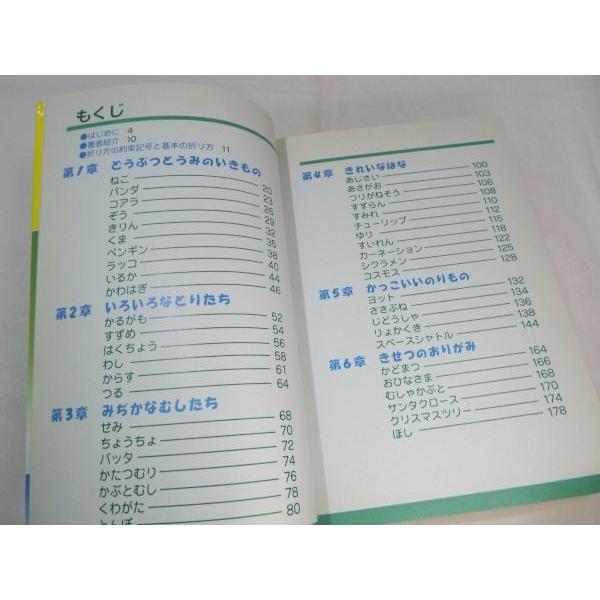 もくじ
●はじめに 4
●著者紹介 10
●折り方の約束記号と基本の折り方 11
第1章 どうぶつとうみのいきもの
ねこ 20
パンダ 23
コアラ 25
ぞう 29
きりん 32
くま 35
ペンギン 38
ラッコ 40
いるか 44
かわはぎ 46
第2章 いろいろなとりたち
かるがも 52
すずめ 54
はくちょう 56
わし 58
からす 61
つる 64
第3章 みぢかなむしたち
せみ 68
ちょうちょ 70
バッタ 72
かたつむり 74
かぶとむし 76
くわがた 78
とんぼ 80
第4章 きれいなはな
あじさい 100
あさがお 103
つりがねそう 106
すずらん 108
すみれ 110
チューリップ 112
ゆり 115
すいれん 118
カーネーション 122
シクラメン 125
コスモス 128
第5章 かっこいいのりもの
ヨット 132
ささぶね 134
じどうしゃ 136
りょかくき 138
スペースシャトル 144
第6章 きせつのおりがみ
かどまつ 164
おひなさま 166
むしゃかぶと 168
サンタクロース 170
クリスマスツリー 174
ほし 178